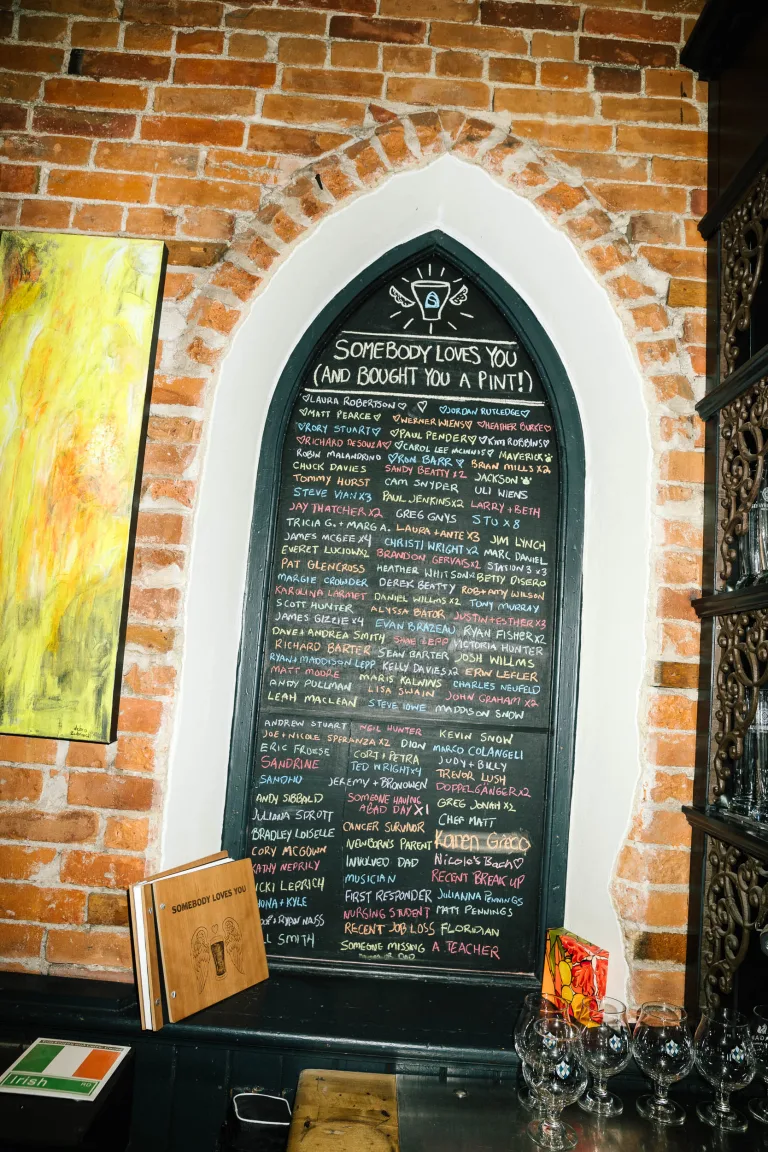 SOMEBODY LOVES YOU
(AND BOUGHT YOU A PINT!)
♡LAURA ROBERTSON♡ ♡ ♡JORDAN RUTLEDGE♡
♡MATT PEARCE♡ ♡WERNER WIENS♡ ♡HEATHER BURKE♡
♡RORY STUART♡ ♡PAUL PENDER♡ ♡KIM ROBBINS♡
♡RICHARD DESOUZA♡ ♡CAROL LEE MCINNIS♡ MAVERICK
ROBIN MALANDRINO ♡RON BARR♡ BRIAN MILLS X2
CHUCK DAVIES SANDY BEATTY X2 JACKSON
TOMMY HURST CAM SNYDER ULI WIENS
STEVE VIAN X3 PAUL JENKINS X2 LARRY + BETH
JAY THATCHER X2 GREG GNYS STU X 8
TRICIA G. + MARG A. LAURA + ANTE X3 JIM LYNCH
JAMES MCGEE X4 CHRISTI WRIGHT X2 MARC DANIEL
EVERET LUCION X2 BRANDON GERVAIS X2 STATION 3 X3
PAT GLENCROSS HEATHER WHITSON X2 BETTY DISERO
MARGIE CROWDER DEREK BEATTY ROB + AMY WILSON
KAROLINA LARMET DANIEL WILLMS X2 TONY MURRAY
SCOTT HUNTER ALYSSA BATOR JUSTIN + ESTHER X3
JAMES GIZZIE X4 EVAN BRAZEAU RYAN FISHER X2
DAVE + ANDREA SMITH LEPP VICTORIA HUNTER
RICHARD BARTER SEAN BARTER JOSH WILLMS
RYAN + MADDISON LEPP KELLY DAVIES X2 ERIN LEFLER
MATT MOORE MARIS KALNINS CHARLES NEUFELD
ANDY PULLMAN LISA SWAIN JOHN GRAHAM X2
LEAH MACLEAN STEVE LOWE MADDISON SNOW
ANDREW STUART NEIL HUNTER KEVIN SNOW
JOE + NICOLE SPERANZA X2 DION MARCO COLANGELI
ERIC FROESE CORT + PETRA JUDY + BILLY
SANDRINE TED WRIGHT X4 TREVOR LUSH
SANDHU JEREMY + BRONOWEN DOPPELGÄNGER X2
ANDY SIBBALD SOMEONE HAVING A BAD DAY X1 GREG JONAH X2
JULIANA SPROTT CHEF MATT
BRADLEY LOISELLE CANCER SURVIVOR Karen Greco
CORY MCGOWN NEWBORN'S PARENT
KATHY NEPRILY INVOLVED DAD Nicole's Bach♡
ICKI LEPRICH MUSICIAN RECENT BREAK UP
+ KYLE FIRST RESPONDER JULIANNA PENNINGS
+ RYAN NASS NURSING STUDENT MATT PENNINGS
LL SMITH RECENT JOB LOSS FLORIDIAN
SOMEONE MISSING A TEACHER
DAD
SOMEBODY LOVES YOU
Irish